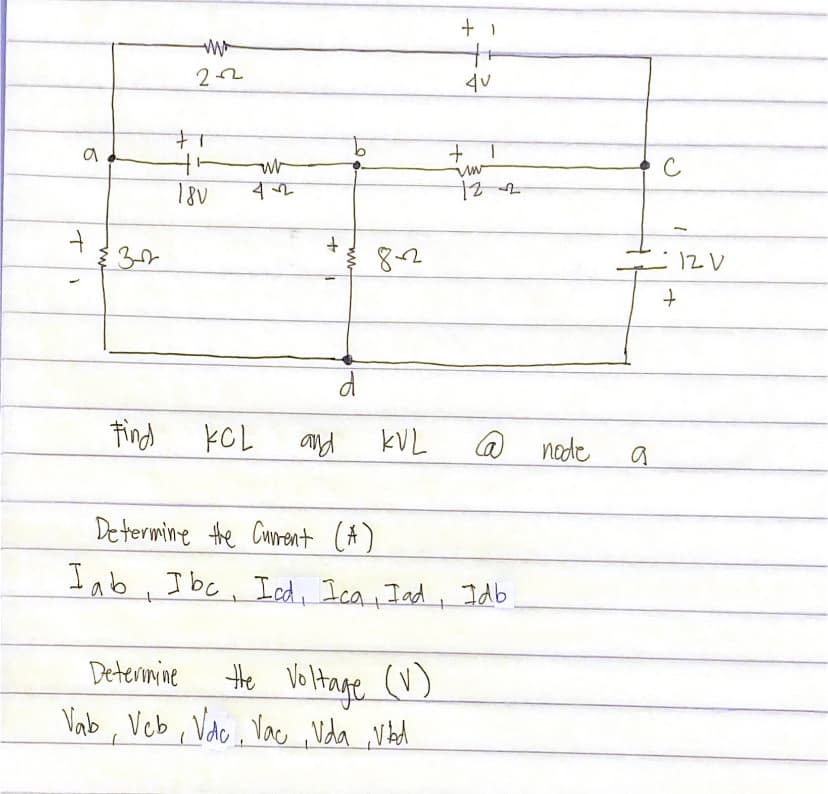 + -
2Ω
4V
+ -
a
b
+ -
c
18V
4Ω
12Ω
+
3Ω
-
+
8Ω
-
-
12V
+
d
Find KCL and KVL @ node a
Determine the Current (A)
Iab, Ibc, Icd, Ica, Iad, Idb
Determine the Voltage (V)
Vab, Vcb, Vdc, Vac, Vda, Vbd